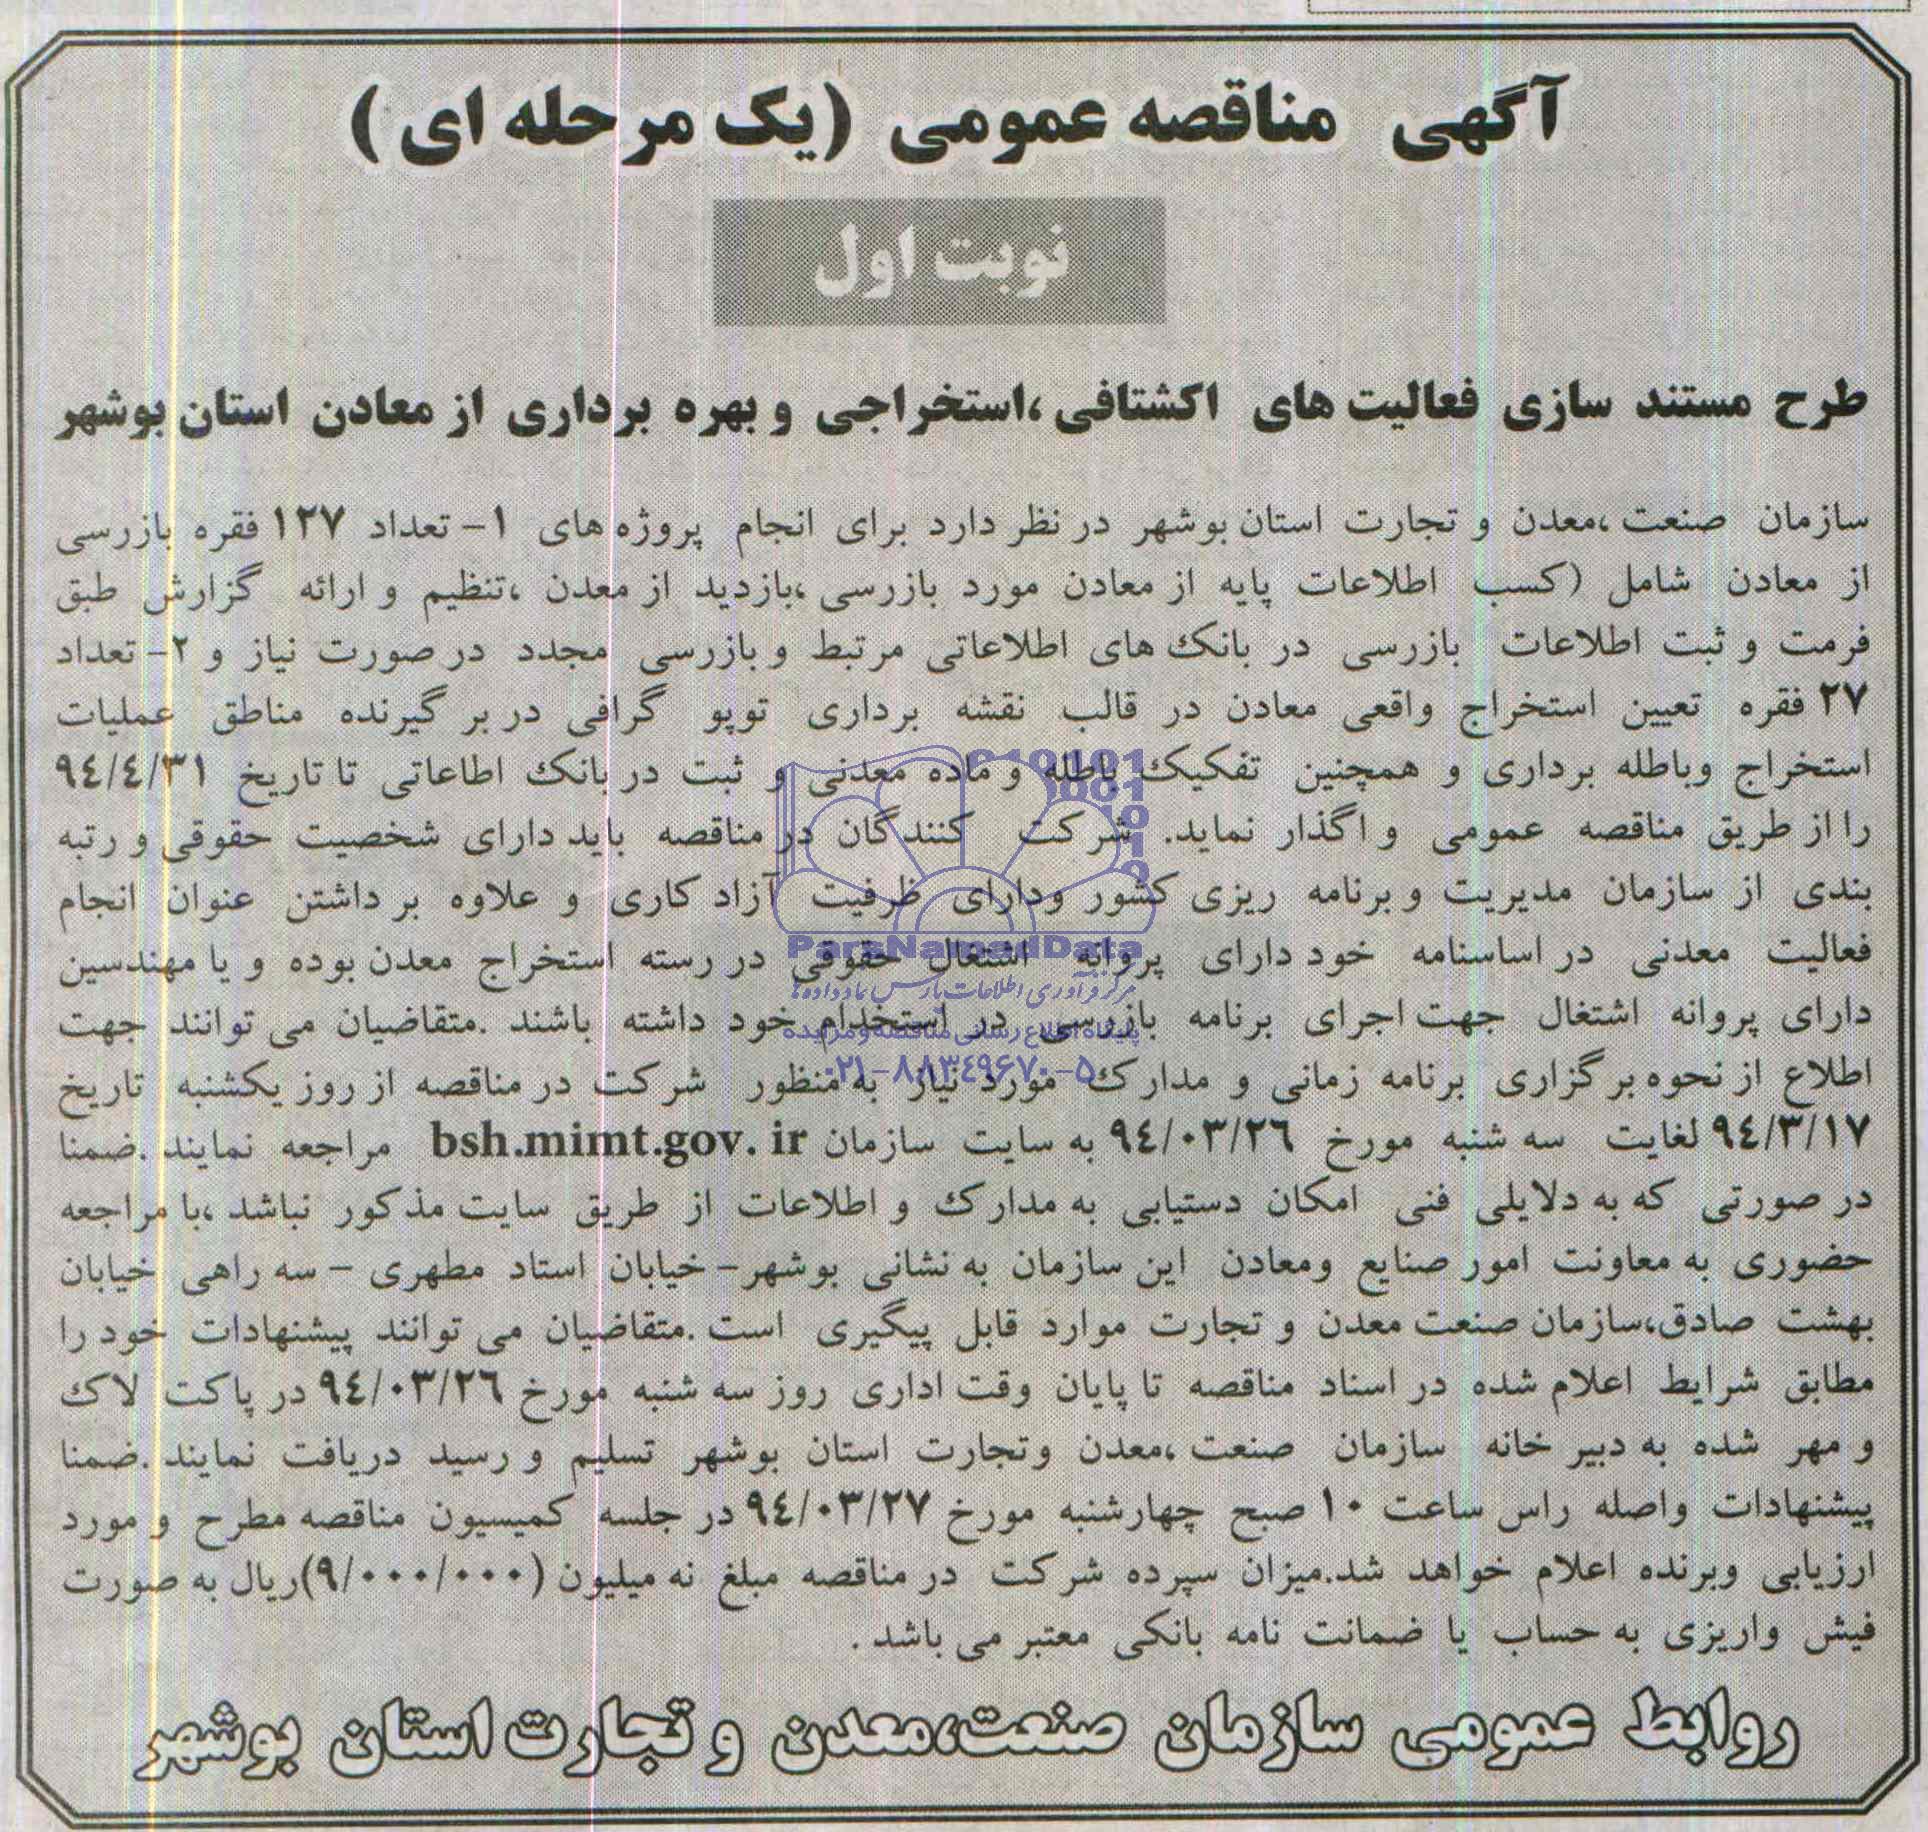 آگهی مناقصه عمومی (یک مرحله ای)
نوبت اول
طرح مستند سازی فعالیت های اکشتافی،استخراجی و بهره برداری از معادن استان بوشهر
سازمان صنعت،معدن و تجارت استان بوشهر در نظر دارد برای انجام پروژه های ۱- تعداد ۱۲۷ فقره بازرسی
از معادن شامل (کسب اطلاعات پایه از معادن مورد بازرسی،بازدید از معدن،تنظیم و ارائه گزارش طبق
فرمت و ثبت اطلاعات بازرسی در بانک های اطلاعاتی مرتبط و بازرسی مجدد در صورت نیاز و ۲- تعداد
۲۷ فقره تعیین استخراج واقعی معادن در قالب نقشه برداری توپو گرافی در بر گیرنده مناطق عملیات
استخراج وباطله برداری و همچنین تفکیک باطله و ماده معدنی و ثبت در بانک اطاعاتی تا تاریخ ۹٤/٤/۳۱
را از طریق مناقصه عمومی و اگذار نماید. شرکت کنندگان در مناقصه باید دارای شخصیت حقوقی و رتبه
بندی از سازمان مدیریت و برنامه ریزی کشور ودارای ظرفیت آزاد کاری و علاوه بر داشتن عنوان انجام
فعالیت معدنی در اساسنامه خود دارای پروانه اشتغال حقوقی در رسته استخراج معدن بوده و یا مهندسین
دارای پروانه اشتغال جهت اجرای برنامه بازرسی در استخدام خود داشته باشند .متقاضیان می توانند جهت
اطلاع از نحوه برگزاری برنامه زمانی و مدارک مورد نیاز به منظور شرکت در مناقصه از روز یکشنبه تاریخ
۹٤/۳/۱۷ لغایت سه شنبه مورخ ۹٤/۰۳/۲٦ به سایت سازمان bsh.mimt.gov. ir مراجعه نمایند .ضمنا
در صورتی که به دلایلی فنی امکان دستیابی به مدارک و اطلاعات از طریق سایت مذکور نباشد ،با مراجعه
حضوری به معاونت امور صنایع ومعادن این سازمان به نشانی بوشهر- خیابان استاد مطهری - سه راهی خیابان
بهشت صادق،سازمان صنعت معدن و تجارت موارد قابل پیگیری است .متقاضیان می توانند پیشنهادات خود را
مطابق شرایط اعلام شده در اسناد مناقصه تا پایان وقت اداری روز سه شنبه مورخ ۹٤/۰۳/۲٦ در پاکت لاک
و مهر شده به دبیر خانه سازمان صنعت ،معدن وتجارت استان بوشهر تسلیم و رسید دریافت نمایند .ضمنا
پیشنهادات واصله راس ساعت ۱۰ صبح چهارشنبه مورخ ۹٤/۰۳/۲۷ در جلسه کمیسیون مناقصه مطرح و مورد
ارزیابی وبرنده اعلام خواهد شد.میزان سپرده شرکت در مناقصه مبلغ نه میلیون (۹/۰۰۰/۰۰۰)ریال به صورت
فیش واریزی به حساب یا ضمانت نامه بانکی معتبر می باشد .
روابط عمومی سازمان صنعت،معدن و تجارت استان بوشهر
ParsNamadData
مرکز فرآوری اطلاعات پارس نماد داده ها
پایگاه اطلاع رسانی مناقصه و مزایده
۰۲۱-۸۸۳٤۹٦۷۰-۵